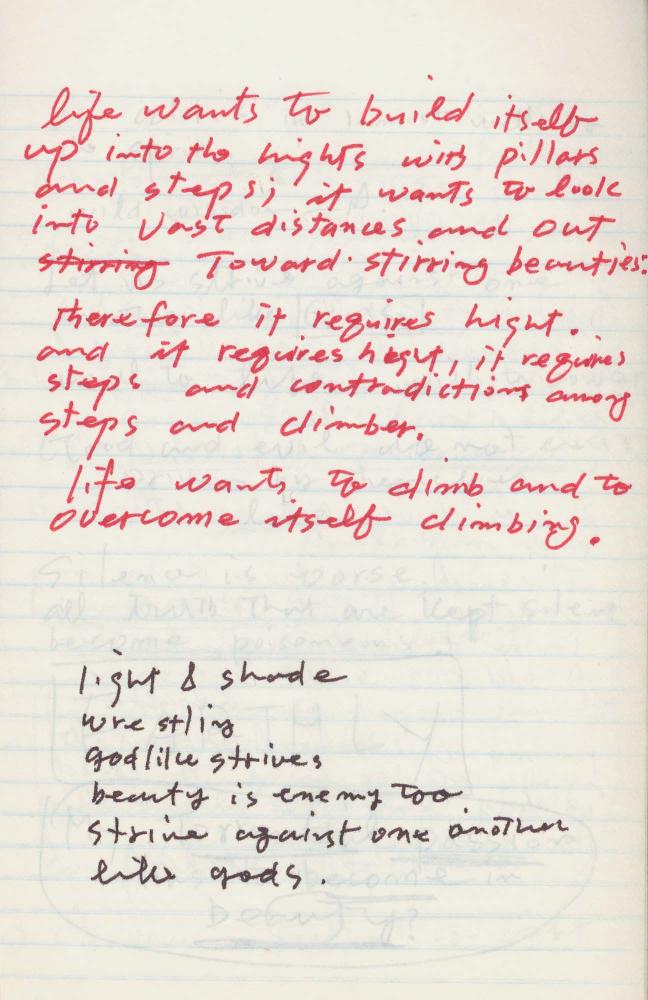 life wants to build itself
up into the hights with pillars
and steps; it wants to look
into vast distances and out
stirring Toward stirring beauties:
therefore it requires hight.
and it requires hight, it requires
steps and contradictions among
steps and climber.
life wants to climb and to
overcome itself climbing.
Silence is worse.
all truth that are kept silent
become poisonous.
light & shade
wrestling
godlike strives
beauty is enemy too
strive against one another
like gods.
beauty?